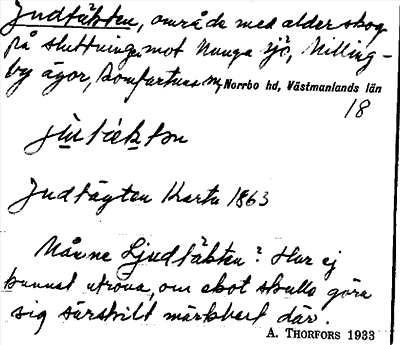 Judtäkten, område med ålderskog
på sluttningen mot Nunga sjö, Nilling-
by ägor, Romfartuna sn, Norrbo hd, Västmanlands län
18
Judtägten Karta 1863
Månne Ljudtäkten? Har ej
kunnat utröna, om ekot skulle göra
sig särskilt märkbart där.
A. THORFORS 1933